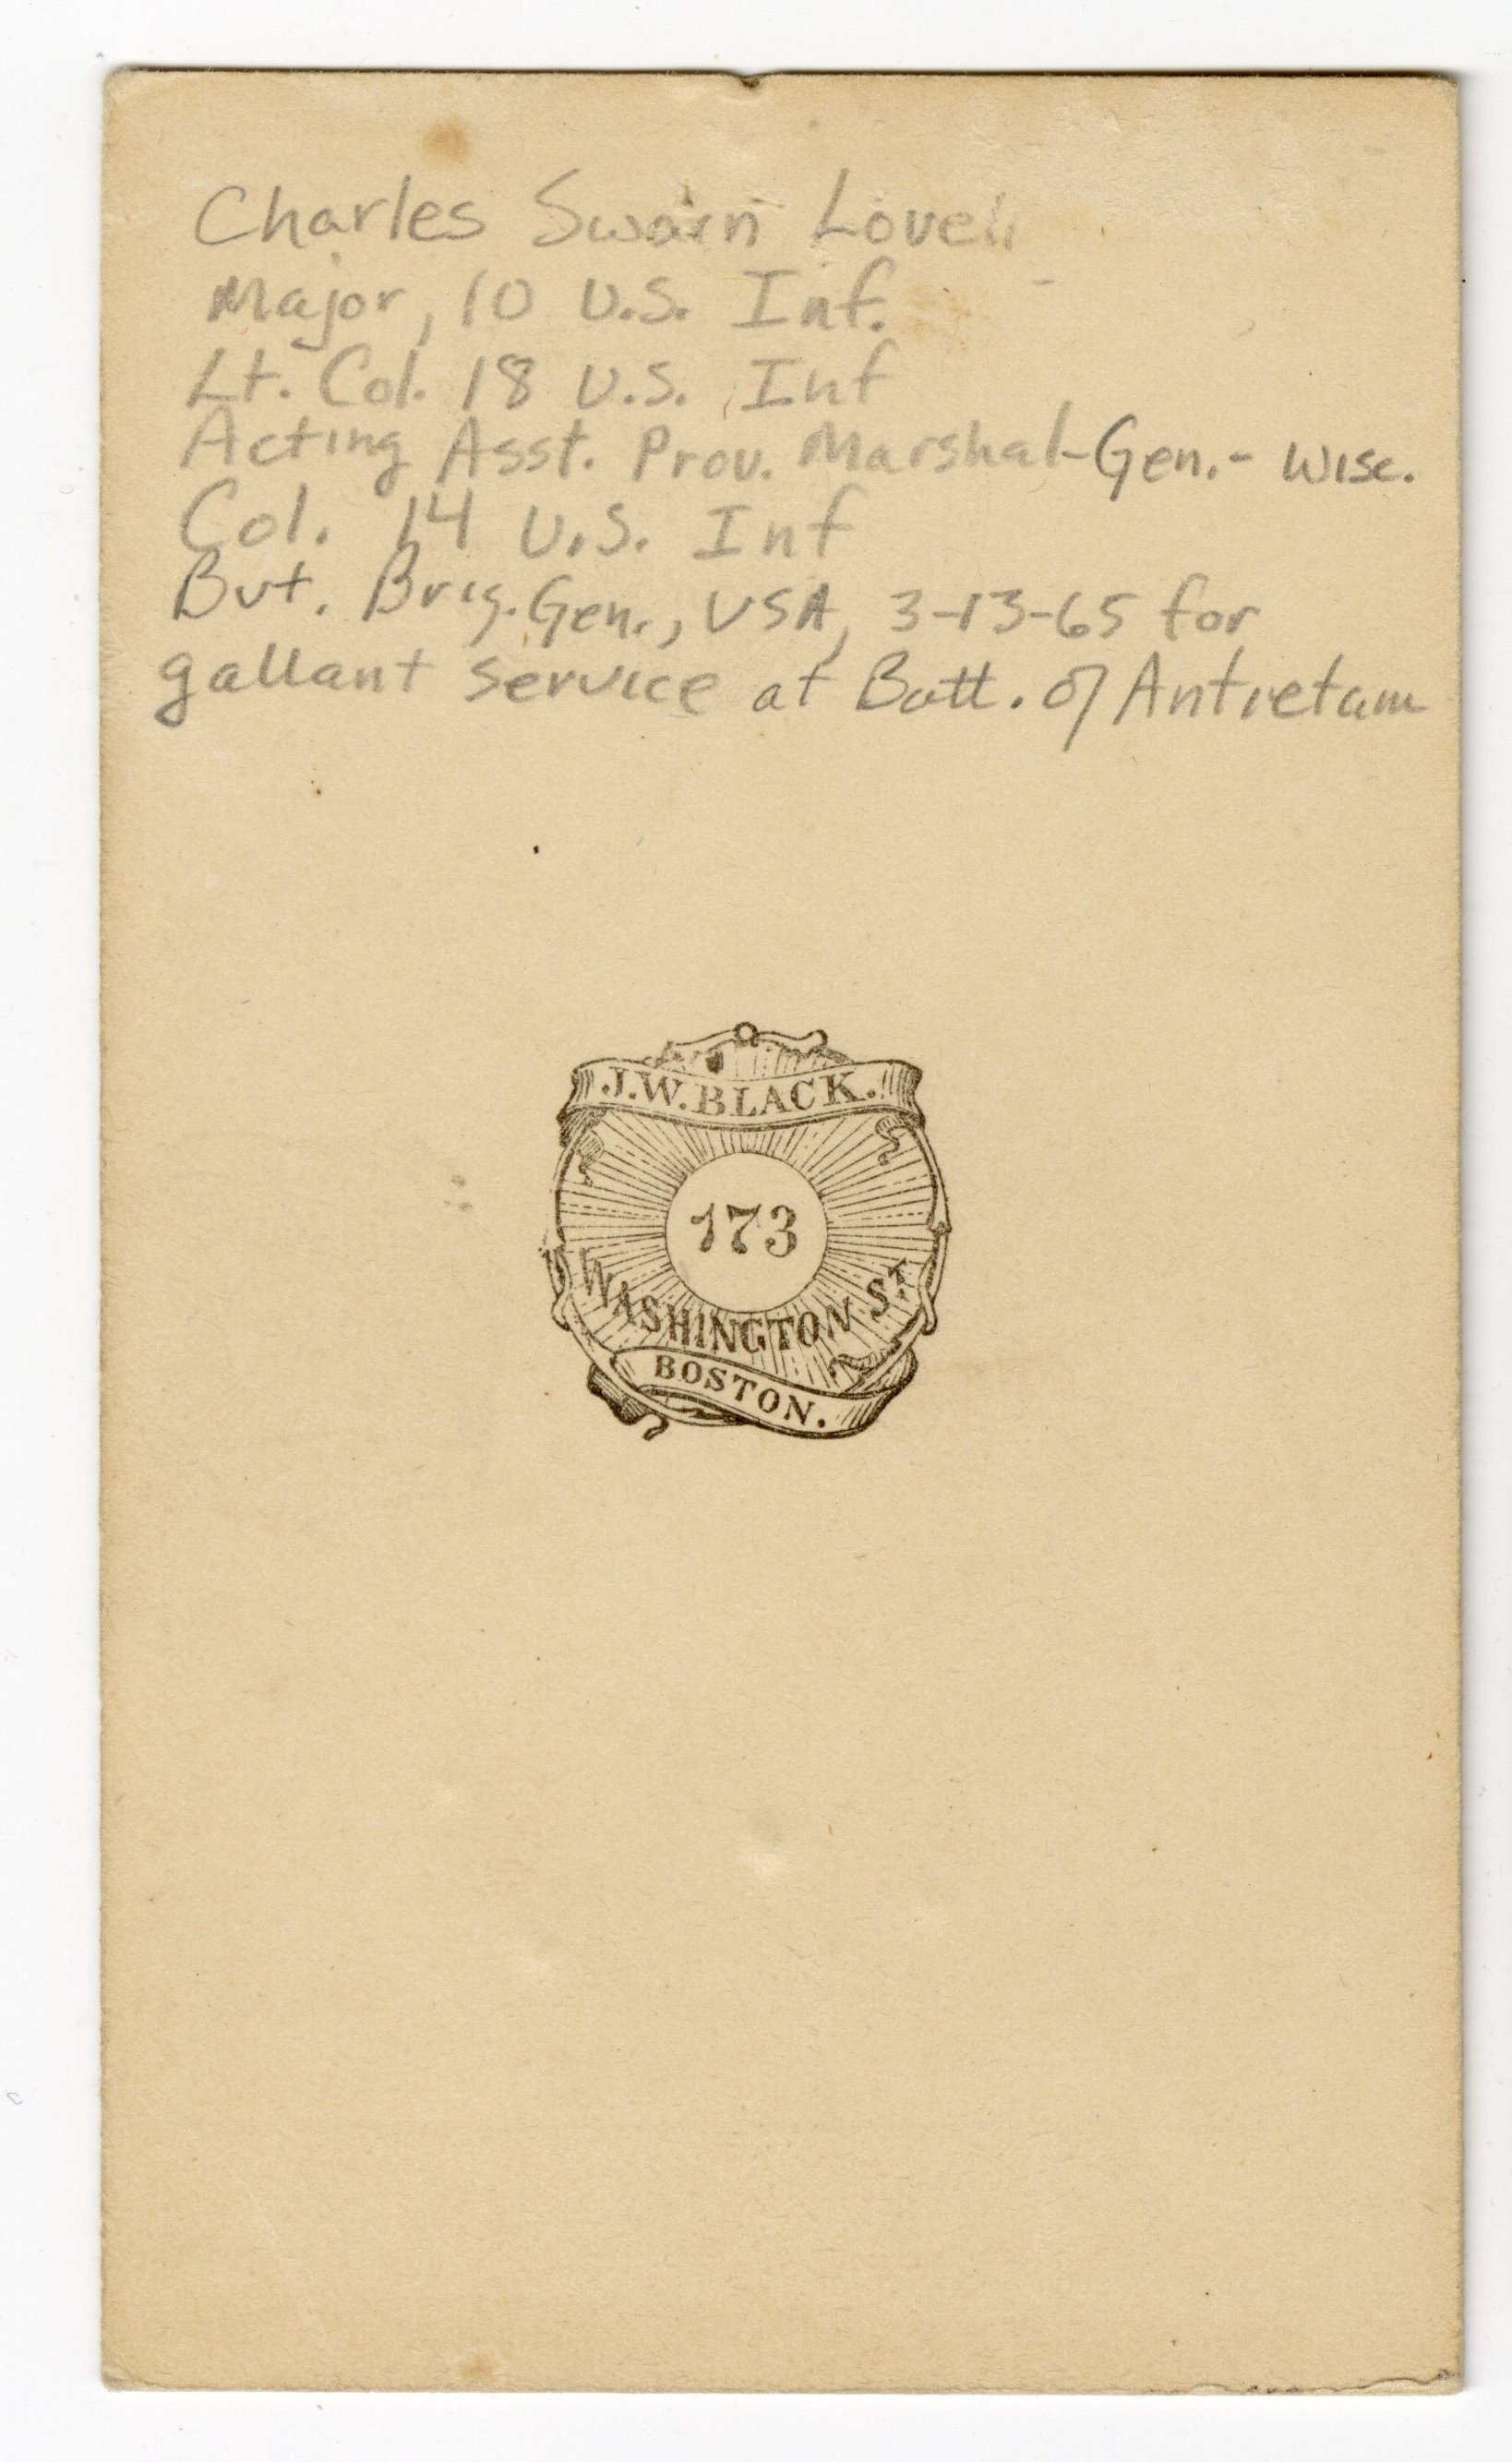 Charles Swain Lovell
Major, 10 U.S. Inf.
Lt. Col. 18 U.S. Inf
Acting Asst. Prov. Marshal-Gen.- Wisc.
Col. 14 U.S. Inf
Bvt. Brig. Gen., USA, 3-13-65 for
gallant service at Batt. of Antietam
J.W. BLACK.
173
WASHINGTON ST
BOSTON.